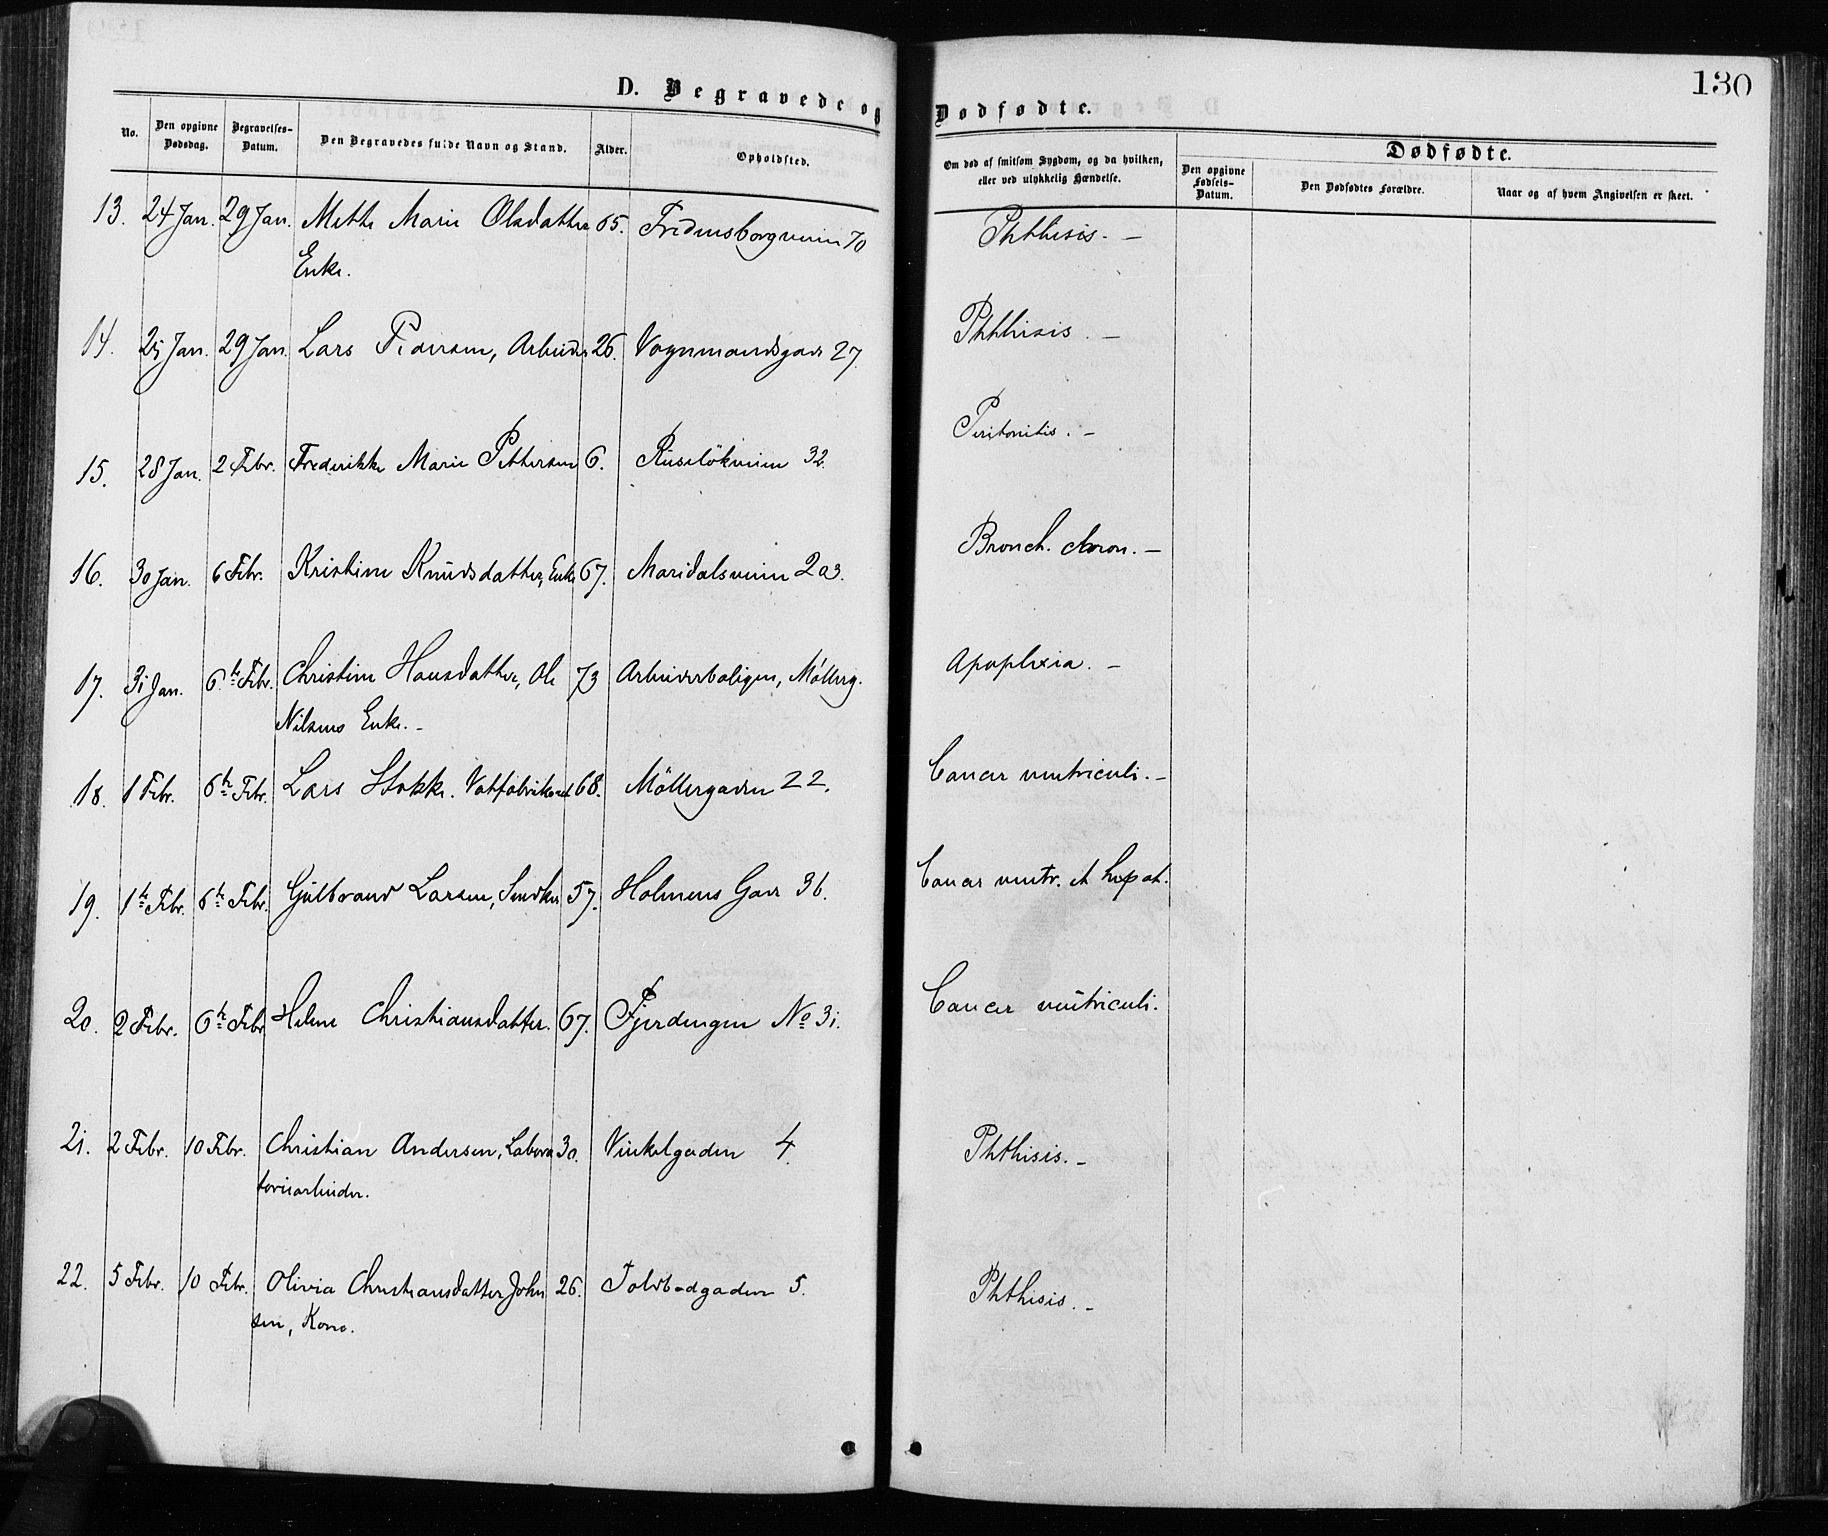 130
D. Begravede og Dødfødte.
No. Den opgivne Dødsdag. Begravelses-Datum. Den Begravedes fulde Navn og Stand. Alder. Opholdsted. Om død af smitsom Sygdom, og da hvilken, eller ved ulykkelig Hændelse. Dødfødte.
Den opgivne Fødsels-Datum. Den Dødfødtes Forældre. Naar og af hvem Angivelsen er skeet.
13. 24 Jan. 29 Jan. Mette Marie Olsdatter 65. Fredensborgveien 70 Phthisis. –
Enke.
14. 25 Jan. 29 Jan. Lars Pedersen, Arbeider 26. Vognmandsgad 27. Phthisis. –
15. 28 Jan. 2 Febr. Frederikke Marie Pettersen 6. Ruseløkveien 32. Peritonitis. –
16. 30 Jan. 6 Febr. Kristine Knudsdatter, Enke 67. Maridalsveien 203. Bronch. chron. –
17. 31 Jan. 6te Febr. Christine Hansdatter, Ole 73 Arbeiderboligen, Møllerg. Apoplexia. –
Nilsens Enke. –
18. 1 Febr. 6te Febr. Lars Stokke. Vatfabrikant 68. Möllergaden 22. Cancer ventriculi. –
19. 1te Febr. 6te Febr. Gulbrand Larsen, Snedker 57. Holmens Gade 36. Cancer ventr. et hepat.
20. 2 Febr. 6te Febr Helene Christiansdatter. 67. Fjerdingen No 31. Cancer ventriculi.
21. 2 Febr. 10 Febr. Christian Andersen, Labora 30. Vinkelgaden 4. Phthisis. –
toriearbeider.
22. 5 Febr. 10 Febr. Olivia Christiansdatter John 26. Toldbodgaden 5. Phthisis. –
sen, Kone.